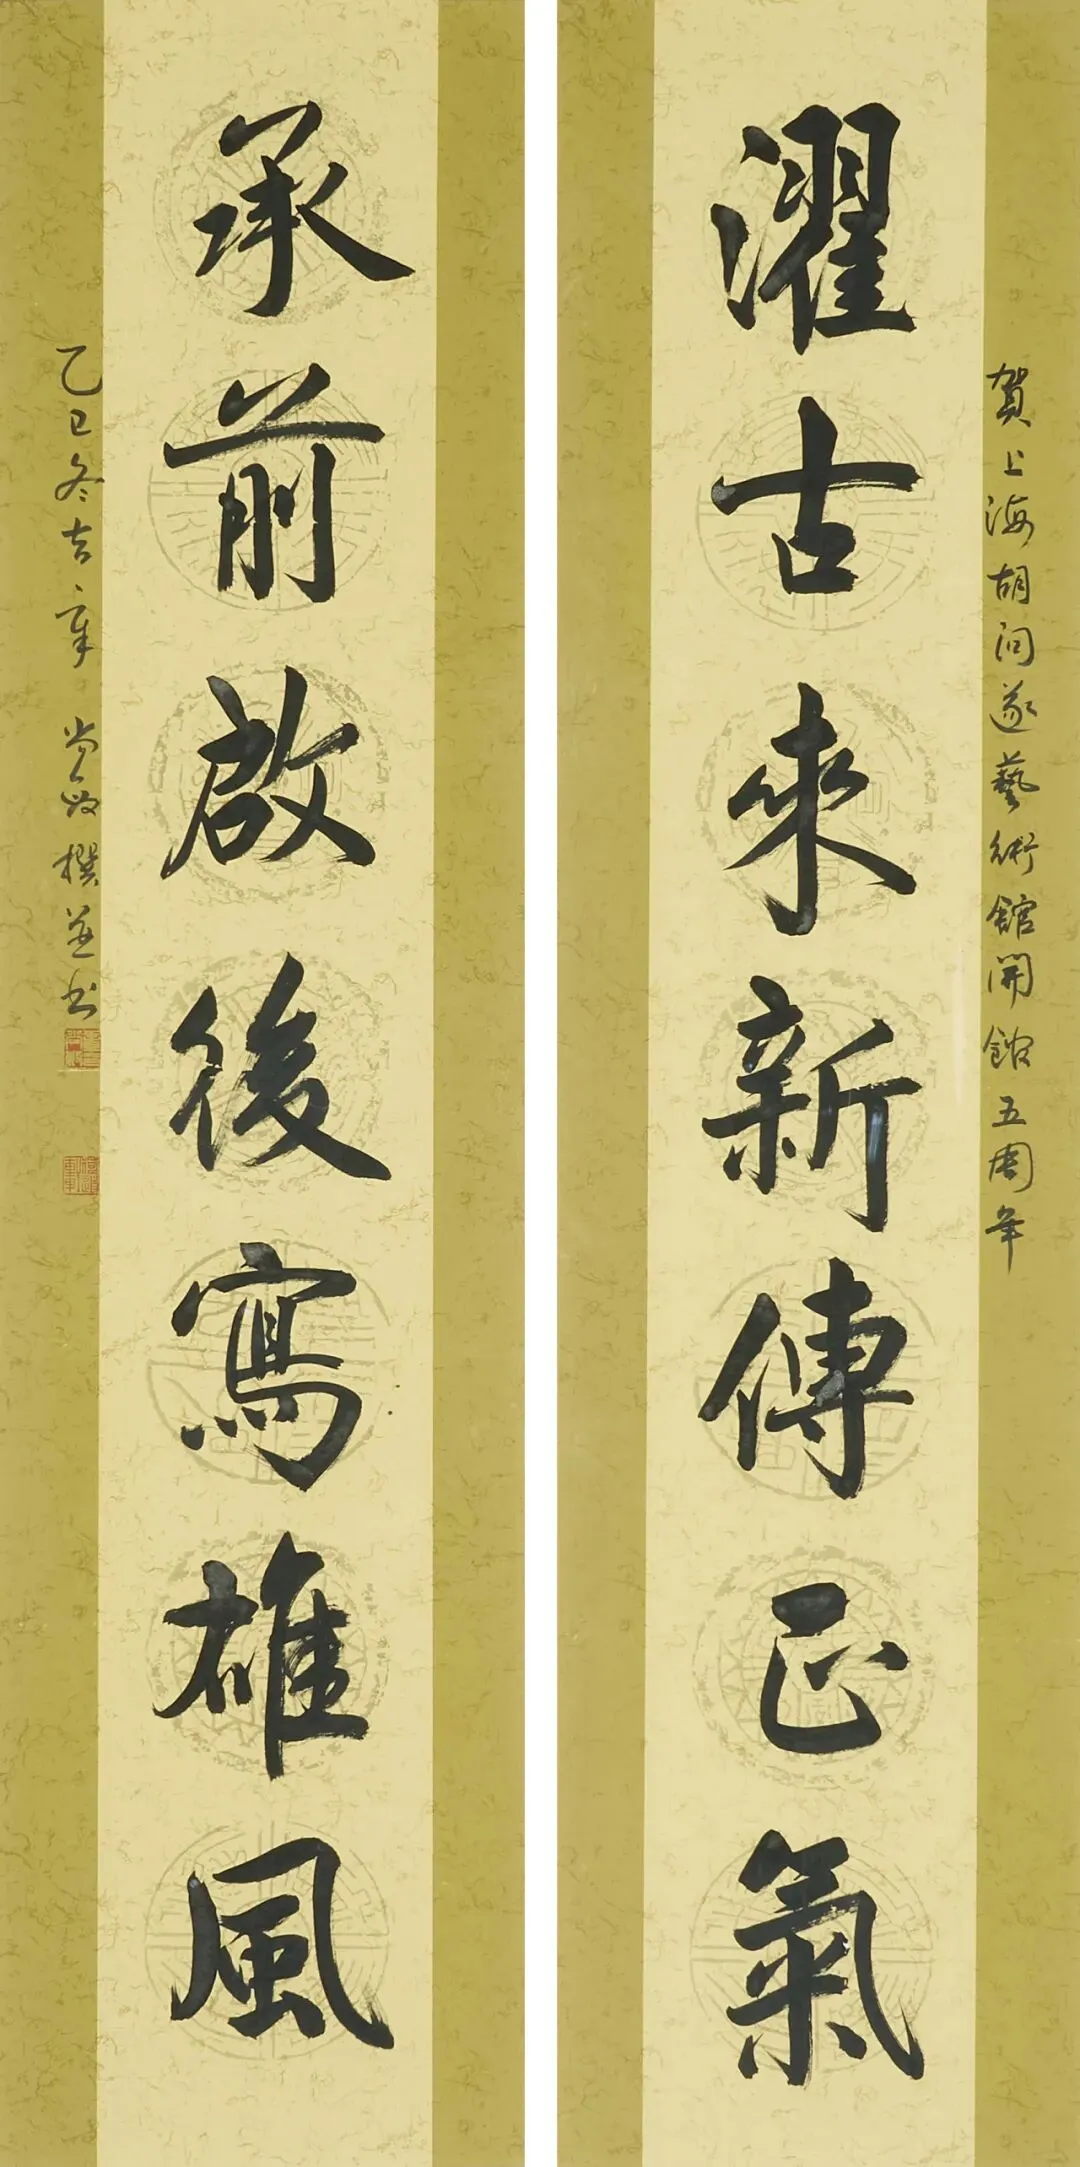 賀上海胡问遂藝術館開館五周年
濯古來新傳正氣
承前啟後寫雄風
乙巳冬吉章
撰並书